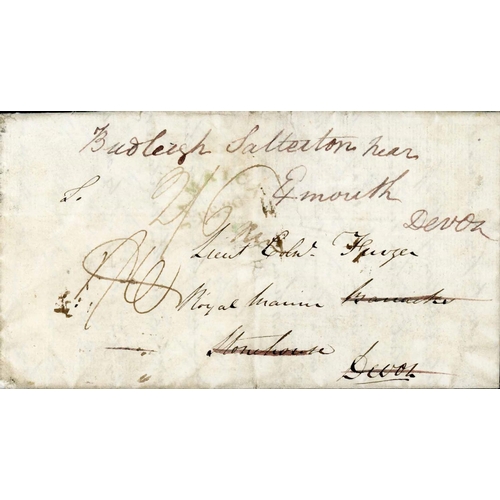 Budleigh Salterton near
Exmouth
Devon
2/6
Lieut Edwd. Huger
Royal Marine Barracks
Stonehouse
Devon